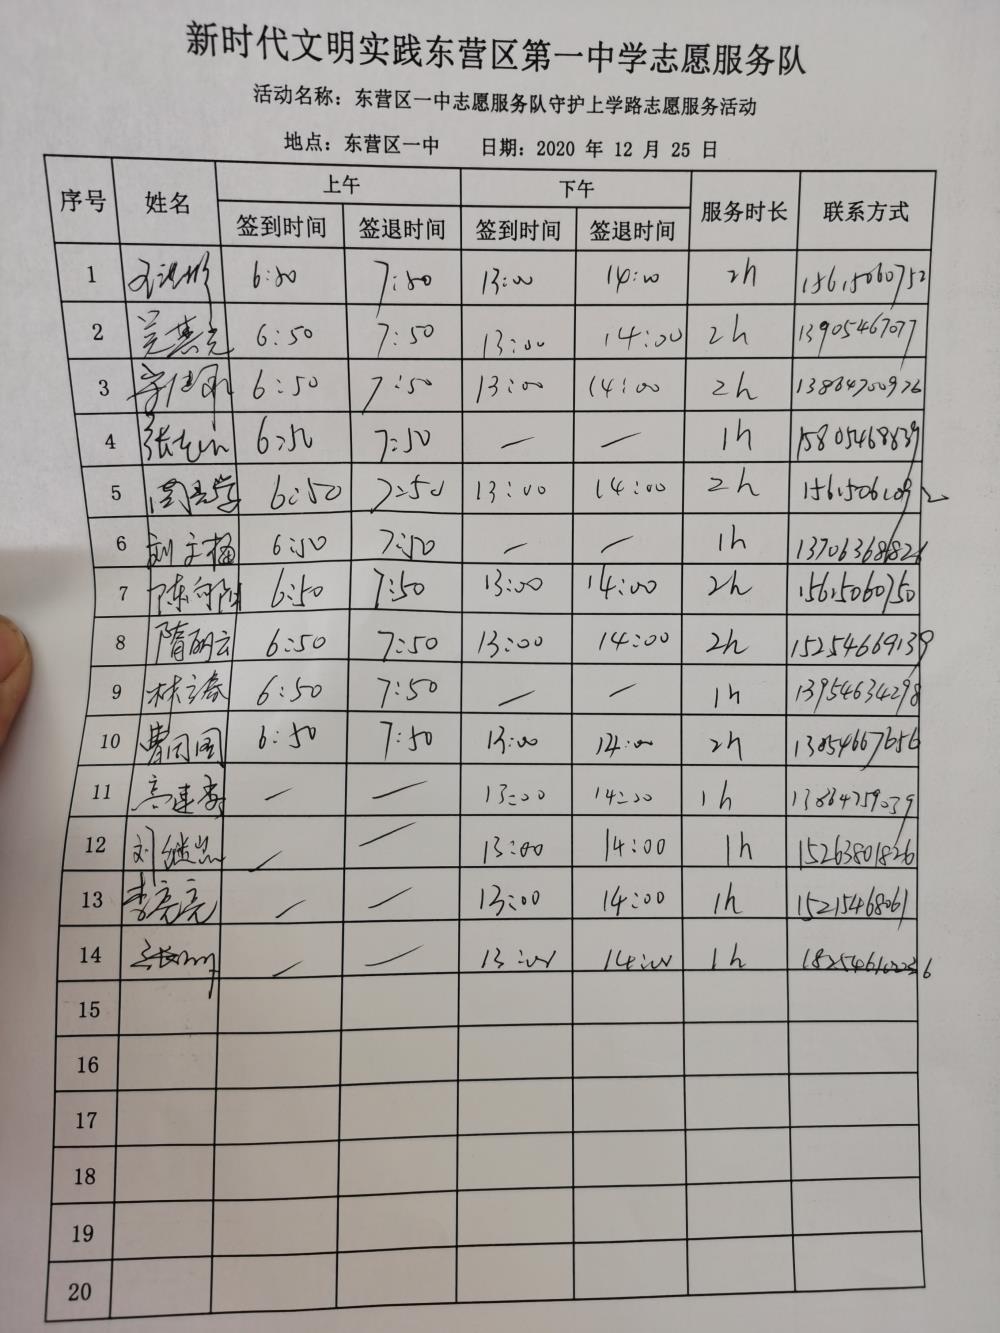 新时代文明实践东营区第一中学志愿服务队
活动名称：东营区一中志愿服务队守护上学路志愿服务活动
地点：东营区一中 日期：2020 年 12 月 25 日
序号 姓名 上午 下午 服务时长 联系方式
签到时间 签退时间 签到时间 签退时间
1 6:50 7:50 13:00 14:00 2h 15615060752
2 6:50 7:50 13:00 14:00 2h 13905467077
3 6:50 7:50 13:00 14:00 2h 13864700926
4 6:50 7:50 — — 1h 15805468839
5 6:50 7:50 13:00 14:00 2h
6 刘文梅 6:50 7:50 — — 1h 13706368826
7 陈向阳 6:50 7:50 13:00 14:00 2h 15615060750
8 隋丽云 6:50 7:50 13:00 14:00 2h 15254669139
9 林立春 6:50 7:50 — — 1h 13954634298
10 曹同国 6:50 7:50 13:00 14:00 2h 13854667656
11 — — 13:00 14:00 1h 13864759039
12 刘继岩 — — 13:00 14:00 1h 15263801826
13 李亮亮 — — 13:00 14:00 1h 15215468061
14 — — 13:00 14:00 1h
15
16
17
18
19
20